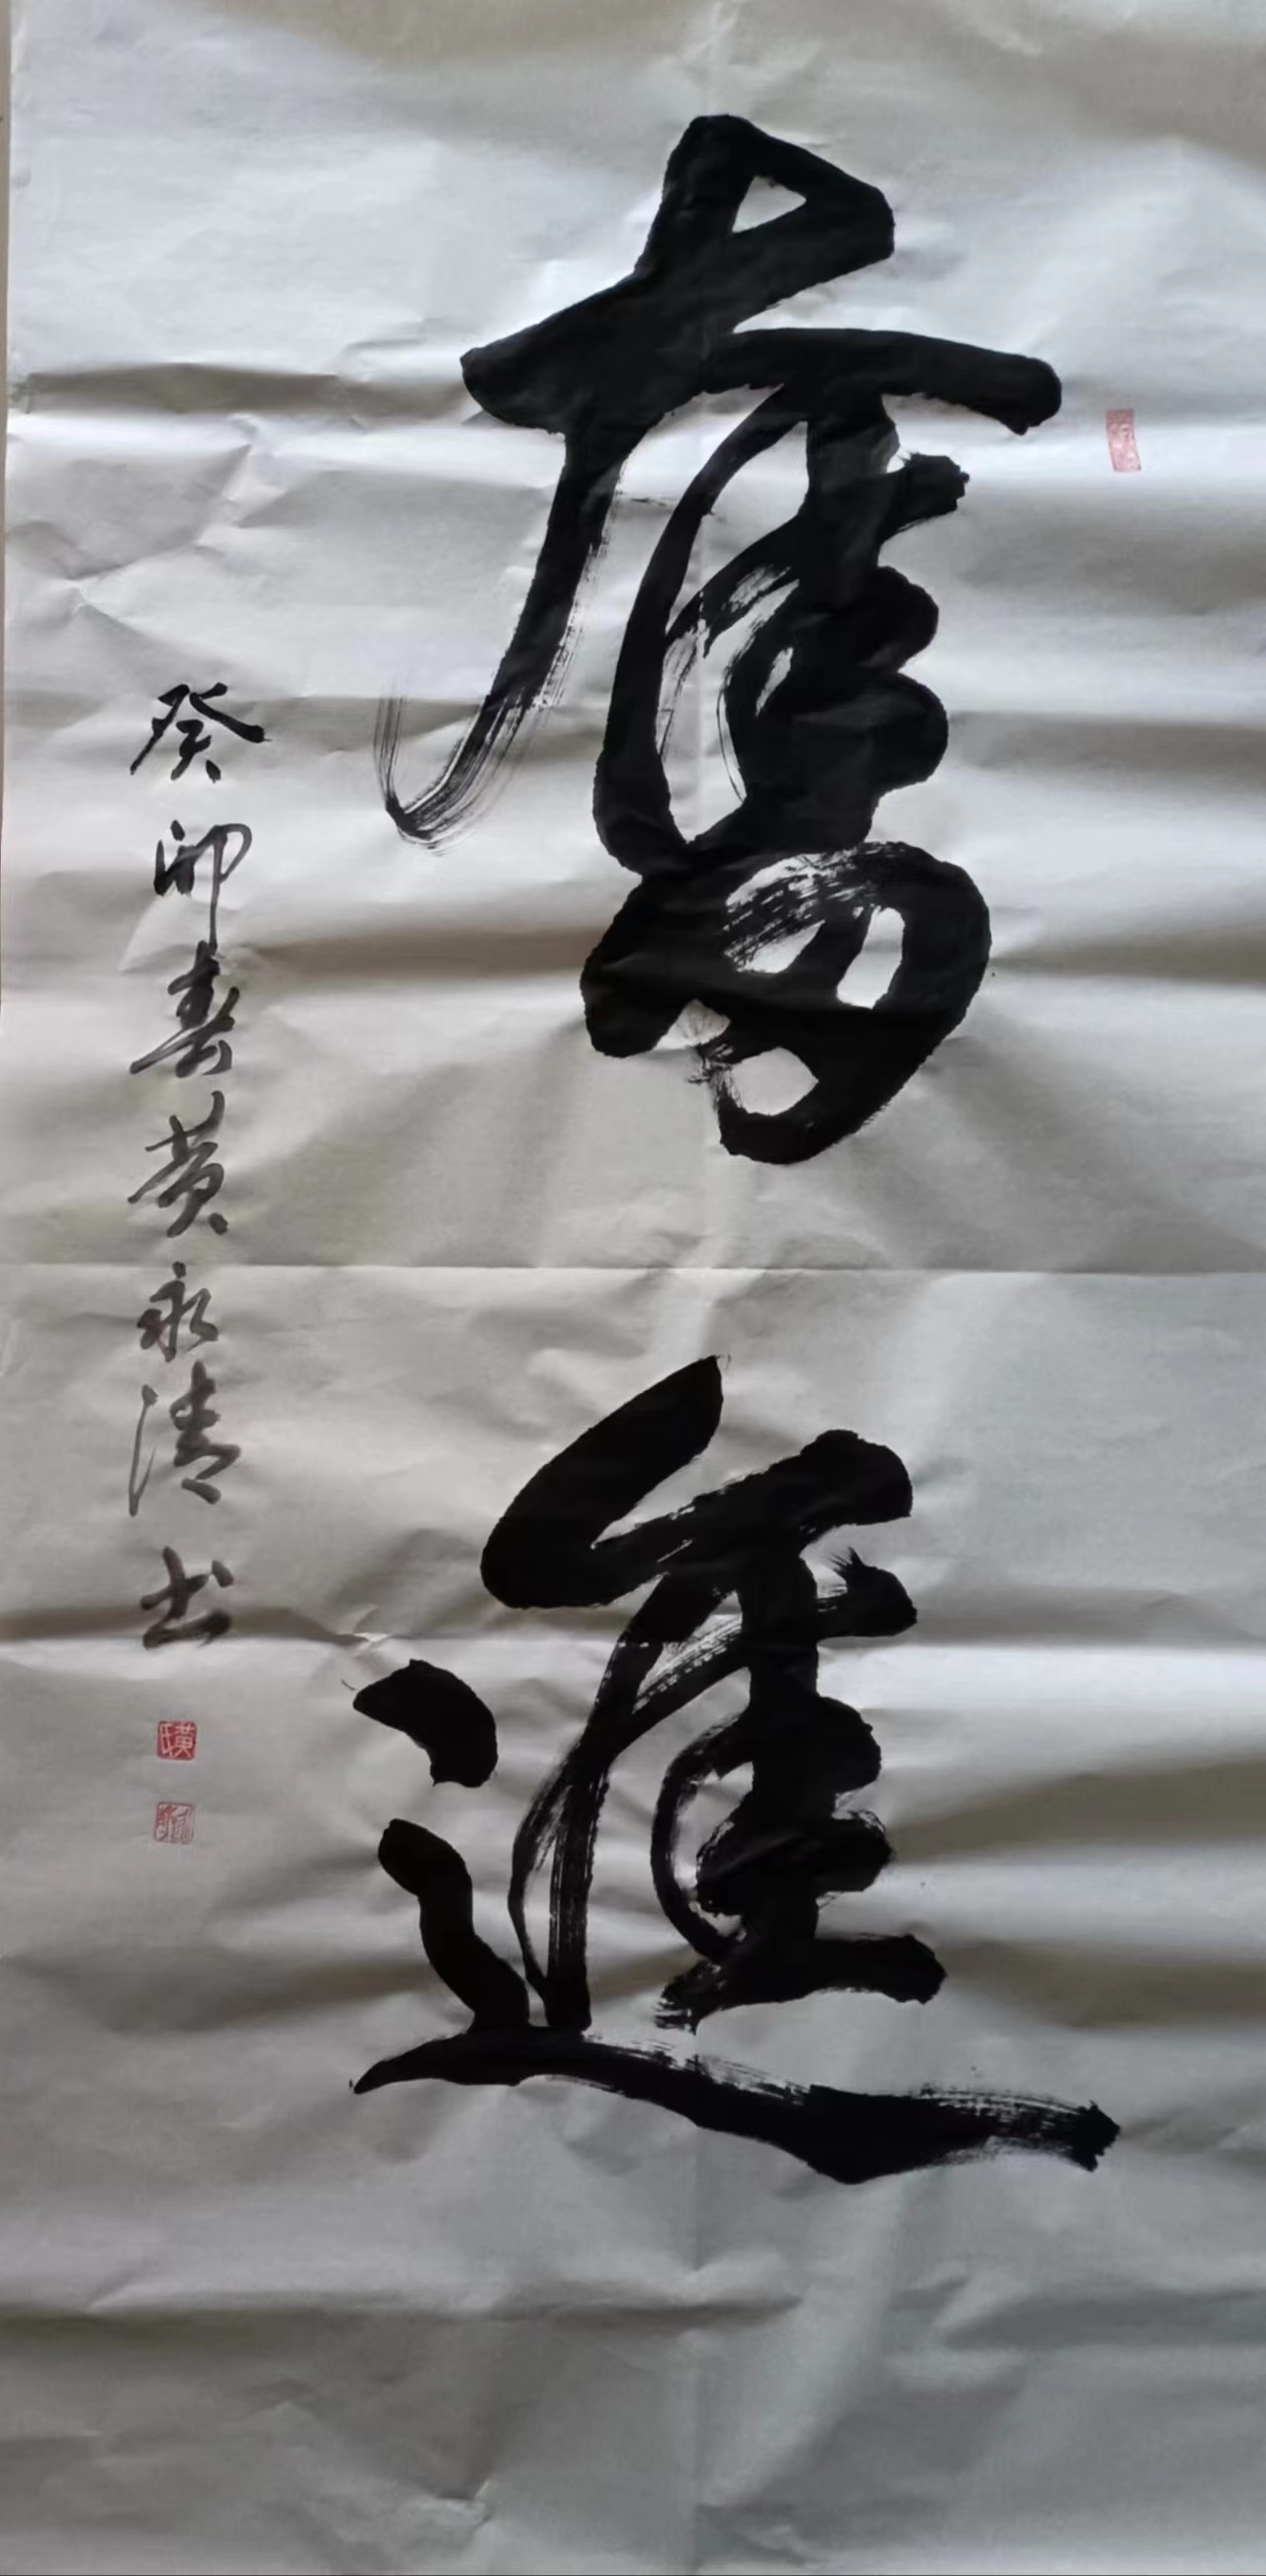 奮進
癸卯春黄永清书
黄氏